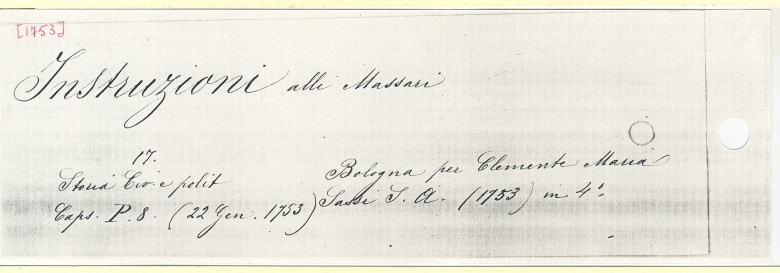 [1753]
Instruzioni alli Massari
17.
Storia Civ. e polit
Caps. P. 8. (22 Gen. 1753)
Bologna per Clemente Maria
Sassi S. A. (1753) in 4°.